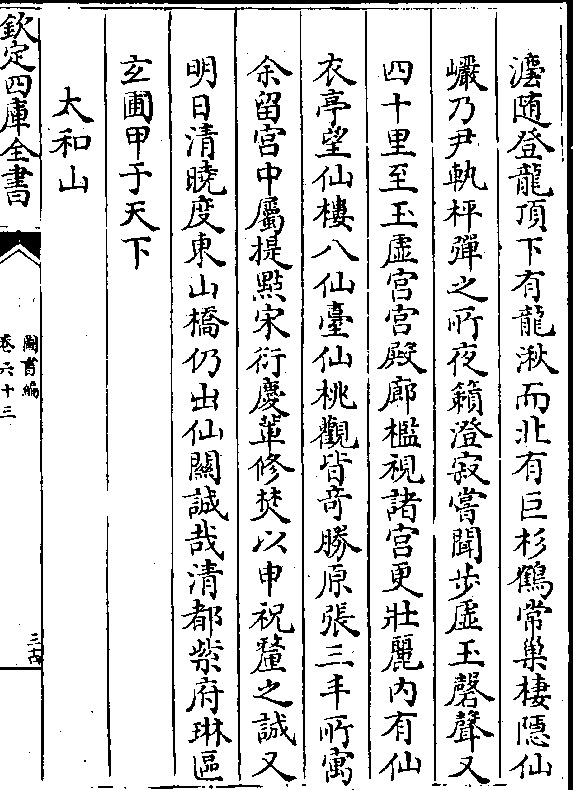 瀍随登龍頂下有龍湫而北有巨杉鶴常巢棲隱仙
巗乃尹軌枰彈之所夜籟澄寂嘗聞步虛玉磬聲又
四十里至玉虛宮宮殿廊檻視諸宮更壯麗內有仙
衣亭望仙樓八仙臺仙桃觀皆竒勝原張三丰所寓
余留宮中屬提㸃宋衍慶輩修焚以申祝釐之誠又
明日清曉度東山橋仍出仙關誠哉清都紫府琳區
玄圃甲于天下
太和山
欽定四庫全書
圖書編
卷六十三
三十四